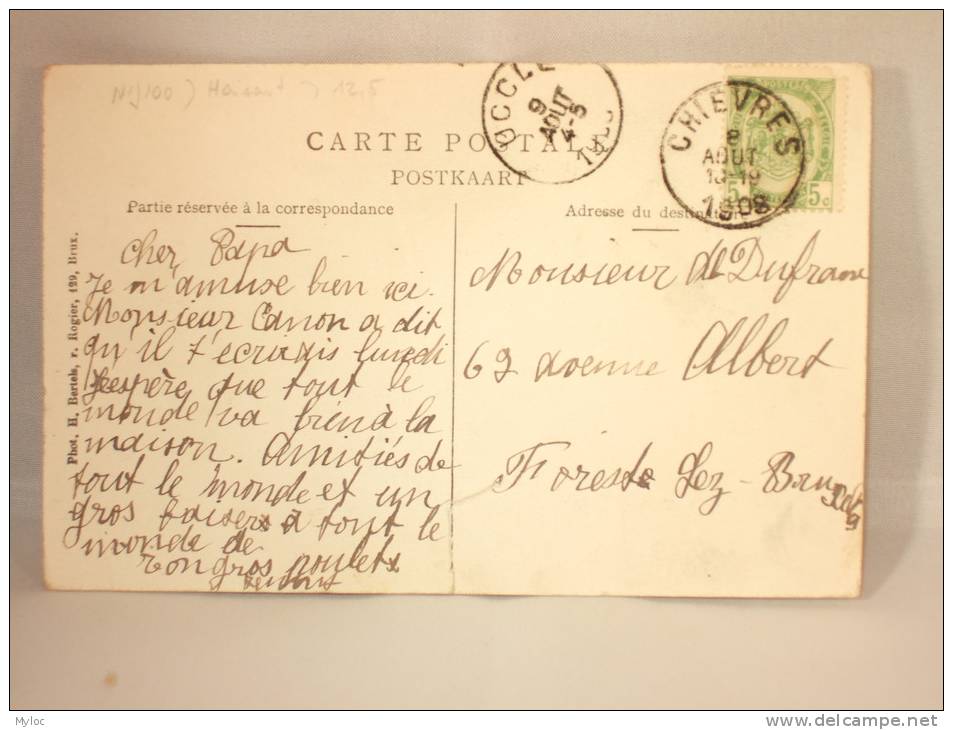 Hainaut 12,5
UCCLE
9
AOUT
4-5
CHIEVRES
8
AOUT
18-19
1908
5 5c
CARTE POSTALE
POSTKAART
Partie réservée à la correspondance
Adresse du destinataire
Phot. H. Bertels, r. Rogier, 129, Brux.
Cher Papa
Je m'amuse bien ici.
Monsieur Canon a dit
qu'il t'écrirais lundi
J'espère que tout le
monde va bien à la
maison. Amitiés de
tout le monde et un
gros baisers à tout le
monde de
ton gros poulet
Monsieur de Dufrane
69 avenue Albert
Forest Lez-Bruxelles
Myloc
delcampe.net